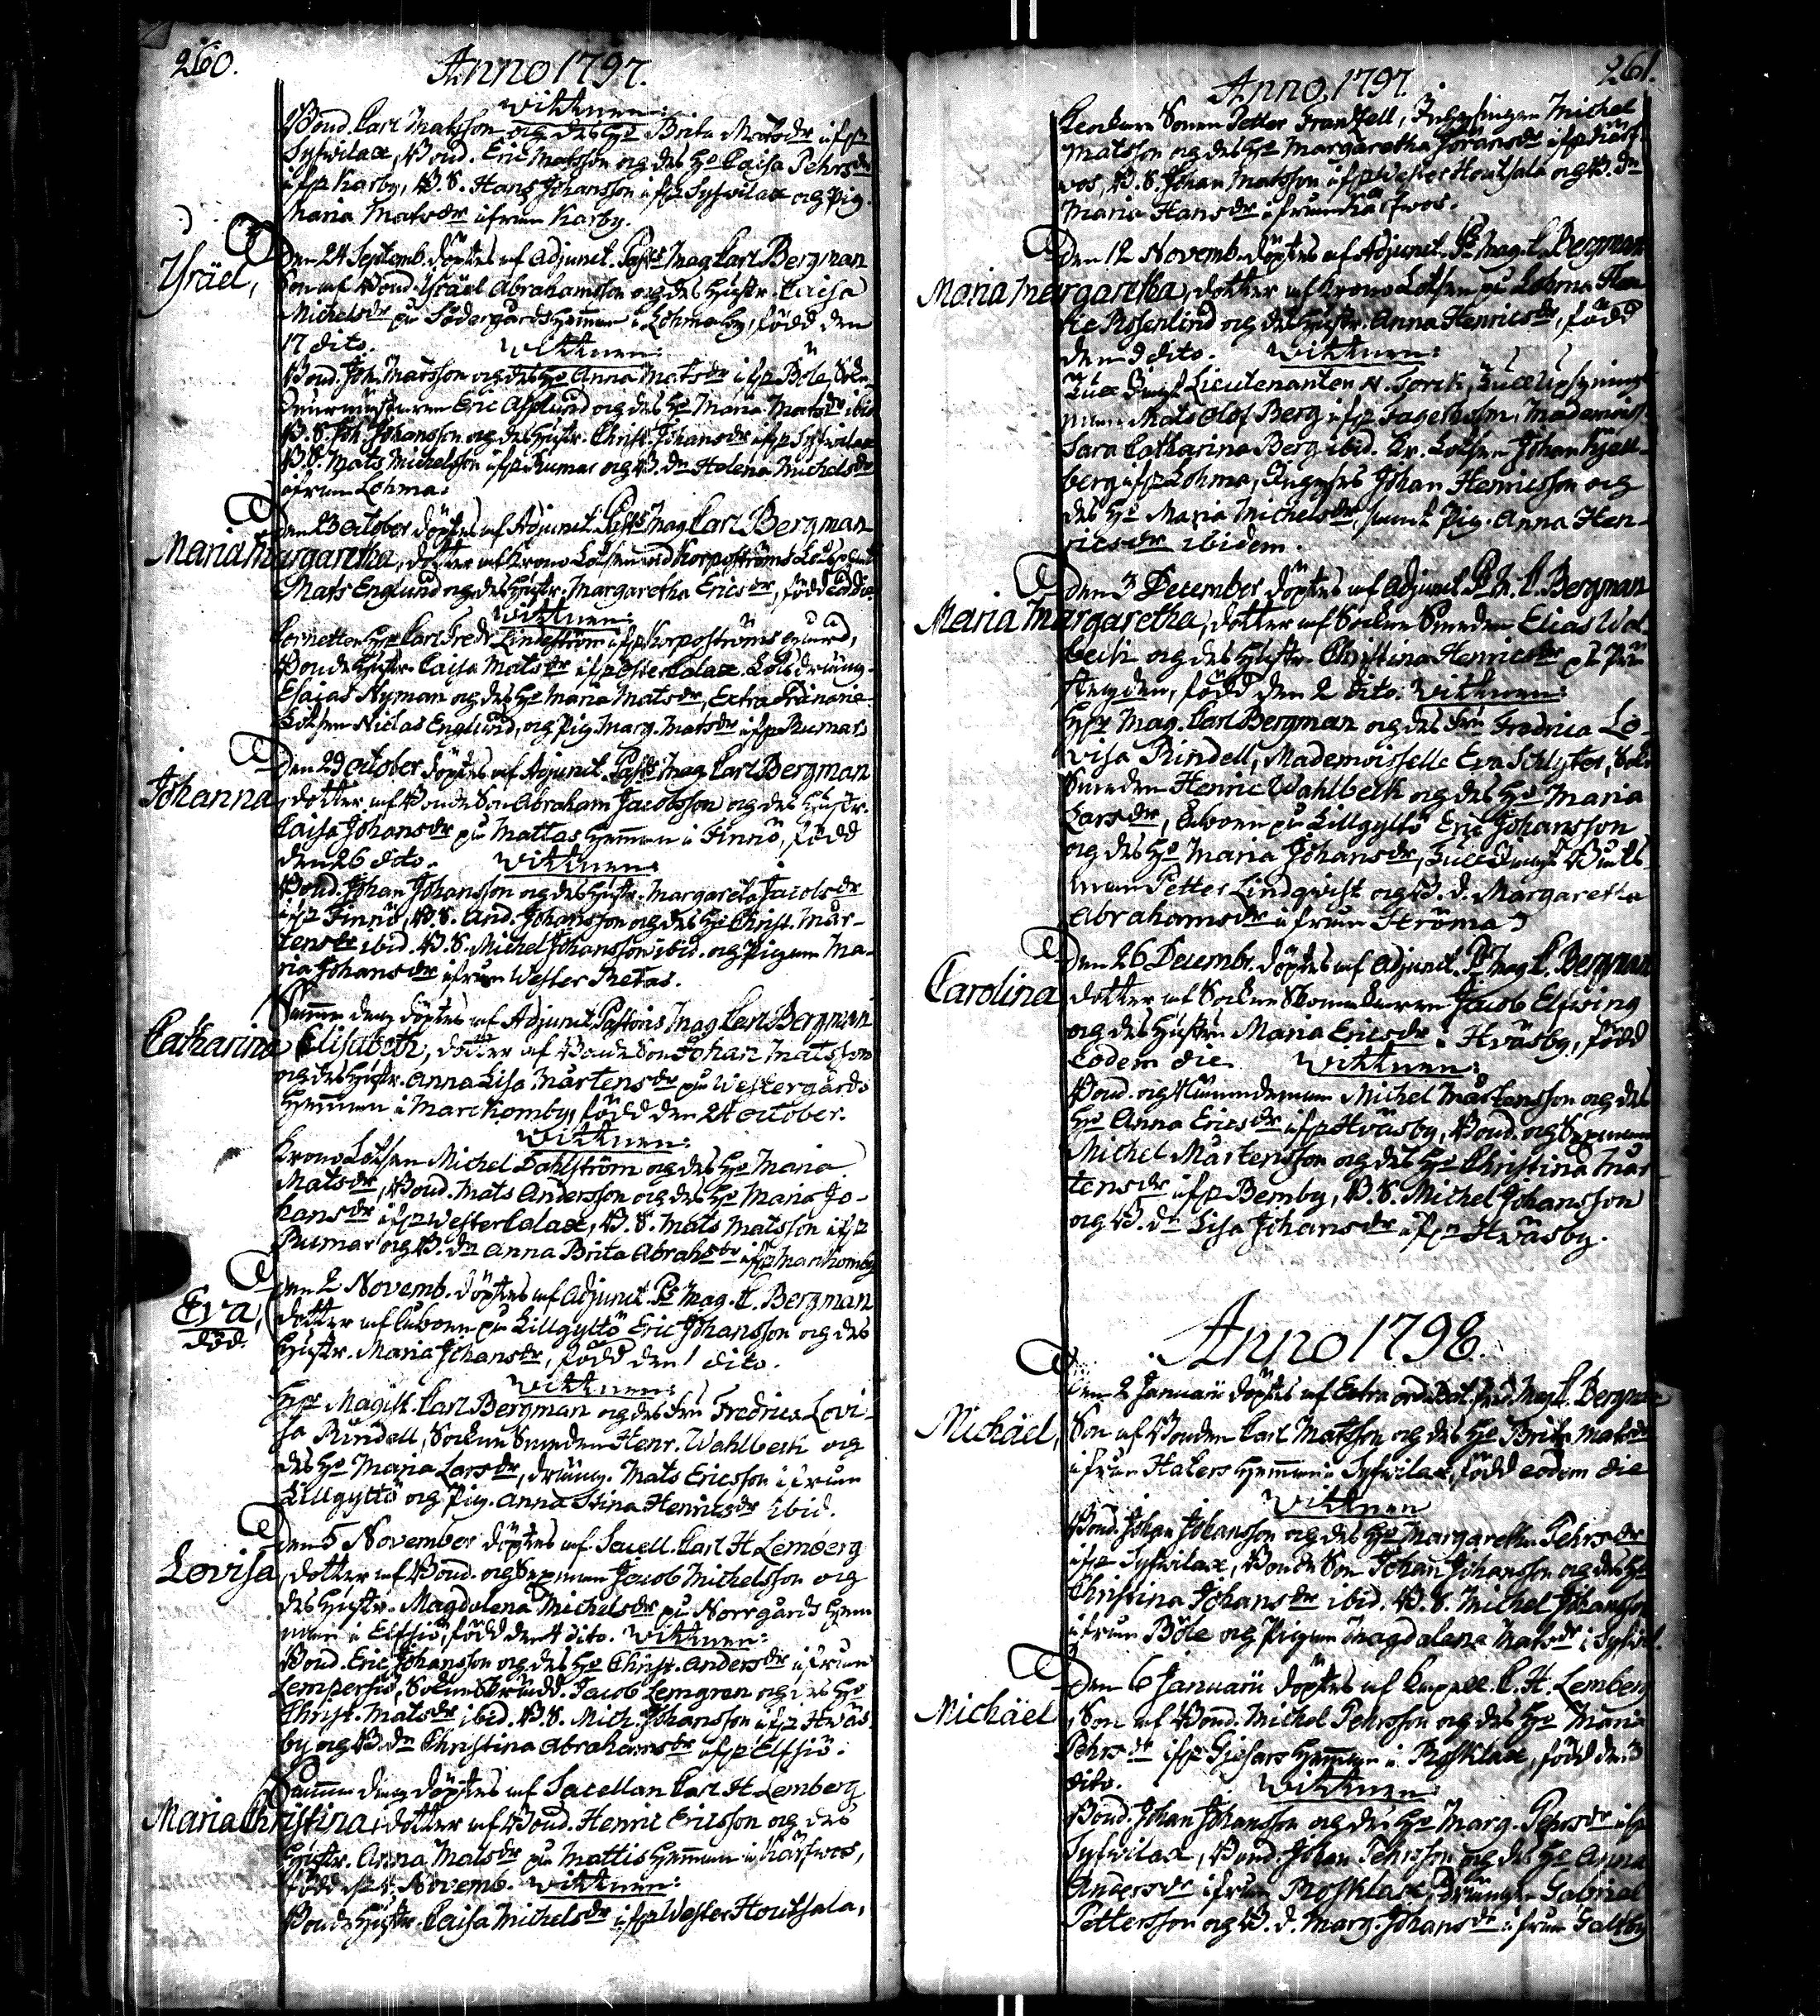 260.
Anno 1797.
Wittnen:
Bond. Carl Matsson och des H:o Brita Matsdr ifr:n
Sysvilax, Bond. Eric Matsson och des H:o Caisa Pehrsdr
ifr:n Karby, B.S. Hans Johansson ifr:n Sysvilax och Pig.
Maria Matsdr ifrån Karby.
Den 24 Septemb. döptes af Adjunct. Past:s Mag. Carl Bergman
Ysräel, Son af Bond. Ysräel Abrahamsson och des Hustr. Caisa
Michelsdr på Södergårds Hemman i Lohmaby, född den
17 dito. Wittnen:
Bond. Joh. Matsson och des H:o Anna Matsdr ifr:n Böle,
Eric Asplund och des H:o Maria Matsdr ibid.
B.S. Joh. Johansson och des Hustr. Christ. Johansdr ifr:n Sysvilax
B.S. Mats Michelsson ifr:n Rumar och B.dr Helena Michelsdr
ifrån Lohma.
Den 23 October döptes af Adjunct. Past:s Mag. Carl Bergman
Maria Margaretha, dotter af Krono Lotsen vid Korpoströms
Mats Englund och des Hustr. Margaretha Ericsdr, född eod. die.
Wittnen:
Cornetten H:r Carl Fredr. Lindeström ifr:n Korpoströms gård,
Bonde Hustr. Caisa Matsdr ifr:n Öster Calax. Lots dräng.
Esaias Nyman och des H:o Maria Matsdr, Extra Ordinarie
Lotsen Niclas Englund, och Pig. Marg. Matsdr ifr:n Rumar.
Den 29 October döptes af Adjunct. Past:s Mag. Carl Bergman
Johanna, dotter af Bonde Son Abraham Jacobsson och des Hustr.
Caisa Johansdr på Mattas Hemman i Finnö, född
den 26 dito. Wittnen:
Bond. Johan Johansson och des Hustr. Margareta Jacobsdr
ifr:n Finnö, B.S. And. Johansson och des H:o Christ. Mår-
tensdr ibid. B.S. Michel Johansson ibid. och Pigan Ma-
ria Johansdr ifrån Wester Retas.
Samma dag döptes af Adjunct. Pastoris Mag. Carl Bergman
Catharina Elisabeth, dotter af Bonde Son Johan Matsson
och des Hustr. Anna Lisa Mårtensdr på Westergårds
Hemman i Marckomby, född den 24 October.
Wittnen:
Krono Lotsen Michel Dahlström och des H:o Maria
Matsdr, Bond. Mats Andersson och des H:o Maria Jo-
hansdr ifr:n Wester Calax, B.S. Mats Matsson ifr:n
Rumar och B.dr Anna Brita Abrahsdr ifr:n Marckomby
Den 2 Novemb. döptes af Adjunct. P:s Mag. C. Bergman
Eva, dotter af Åboen på Lillgyltö Eric Johansson och des
död.
Hustr. Maria Johansdr, född den 1 dito.
Wittnen:
H:r Magist. Carl Bergman och des Fru Fredrica Lovi-
sa Rindell, Sockne Smeden Henr. Wahlbeck och
des H:o Maria Larsdr, dräng. Mats Ericsson ifrån
Lillgyltö och Pig. Anna Stina Henricsdr ibid.
Den 5 November döptes af Sacell. Carl H. Lemberg
Lovisa, dotter af Bond. och Sexman Jacob Michelsson och
des Hustr. Magdalena Michelsdr på Norrgårds Hem-
man i Elfsjö, född den 4 dito. Wittnen:
Bond. Eric Johansson och des H:o Christ. Andersdr ifrån
Lempersiö, Jacob Lemgren och des H:o
Christ. Matsdr ibid. B.S. Mich. Johansson ifr:n Hväs-
by och B.dr Christina Abrahamsdr ifr:n Elfsiö.
Samma dag döptes af Sacellan Carl H. Lemberg
Maria Christina, dotter af Bond. Henric Ericsson och des
Hustr. Anna Matsdr på Mattis Hemman i Kårfwos,
född Novemb. Wittnen:
Bonde Hustr. Caisa Michelsdr ifr:n Wester Houtsala,
261.
Anno 1797.
Sonen Petter Frantzell, Inhysingen Michel
Matsson och des H:o Margaretha Göransdr ifr:n Kårf-
wos, B.S. Johan Matsson ifr:n Wester Houtsala och B.dr
Maria Hansdr ifrån Kårfwos.
Den 12 Novemb. döptes af Adjunct. P:s Mag. C. Bergman
Maria Margaretha, dotter af Krono Lotsen på Lohma Hen-
ric Rosenlind och des Hustr. Anna Henricsdr, född
den 9 dito. Wittnen:
Lieutenanten N. Torck, Tull Upsynings
man Mats Olof Berg ifr:n Fagerholm, Mademoiss.
Sara Catharina Berg ibid. Kr. Lotsen Johan Kjell-
berg ifr:n Lohma, Inhyses Johan Henricsson och
des H:o Maria Michelsdr, samt Pig. Anna Hen-
ricsdr ibidem.
Den 3 December döptes af Adjunct. P:s M. C. Bergman
Maria Margaretha, dotter af Sockne Smeden Elias Wal-
beck och des Hustr. Christina Henricsdr på
född den 2 dito. Wittnen:
H:r Mag. Carl Bergman och des Fru Fredrica Lo-
visa Rindell, Mademoiselle Eva Schlyter, Sock.
Smeden Henric Wahlbeck och des H:o Maria
Larsdr, Åboen på Lillgyltö Eric Johansson
och des H:o Maria Johansdr,
man Petter Lindqwist och B.d. Margaretha
Abrahamsdr ifrån Ströma.
Den 26 Decembr. döptes af Adjunct. P:s Mag. C. Bergman
Carolina dotter af Sockne Skomakaren Jacob Elfwing
och des Hustru Maria Ericsdr i Hväsby, född
Eodem die. Wittnen:
Bond. och Nämndeman Michel Mårtensson och des
H:o Anna Ericsdr ifr:n Hväsby, Bond. och Sexman
Michel Mårtensson och des H:o Christina Mår-
tensdr ifr:n Bemby, B.S. Michel Johansson
och B.dr Lisa Johansdr ifr:n Hväsby.
Anno 1798.
Den 2 Januarii döptes af Extra ord. Mag. C. Bergman
Michäel, Son af Bonden Carl Matsson och des H:o Brita Matsdr
ifrån Haters Hemman i Sysvilax, född eodem die
Wittnen
Bond. Johan Johansson och des H:o Margaretha Pehrsdr
ifr:n Sysvilax, Bonde Son Johan Johansson och des H:o
Christina Johansdr ibid. B.S. Michel Johansson
ifrån Böle och Pigan Magdalena Matsdr i Sysvil.
Den 6 Januarii döptes af Capell. C. H. Lemberg
Michäel, Son af Bond. Michel Pehrsson och des H:o Maria
Pehrsdr ifr:n Gisars Hemman i Rosklax, född den 3
dito. Wittnen
Bond. Johan Johansson och des H:o Marg. Pehrsdr ifr:n
Sysvilax, Bond. Johan Pehrsson och des H:o Anna
Andersdr ifrån Rosklax, drängen Gabriel
Pettersson och B.d. Marg. Johansdr ifrån Galtby